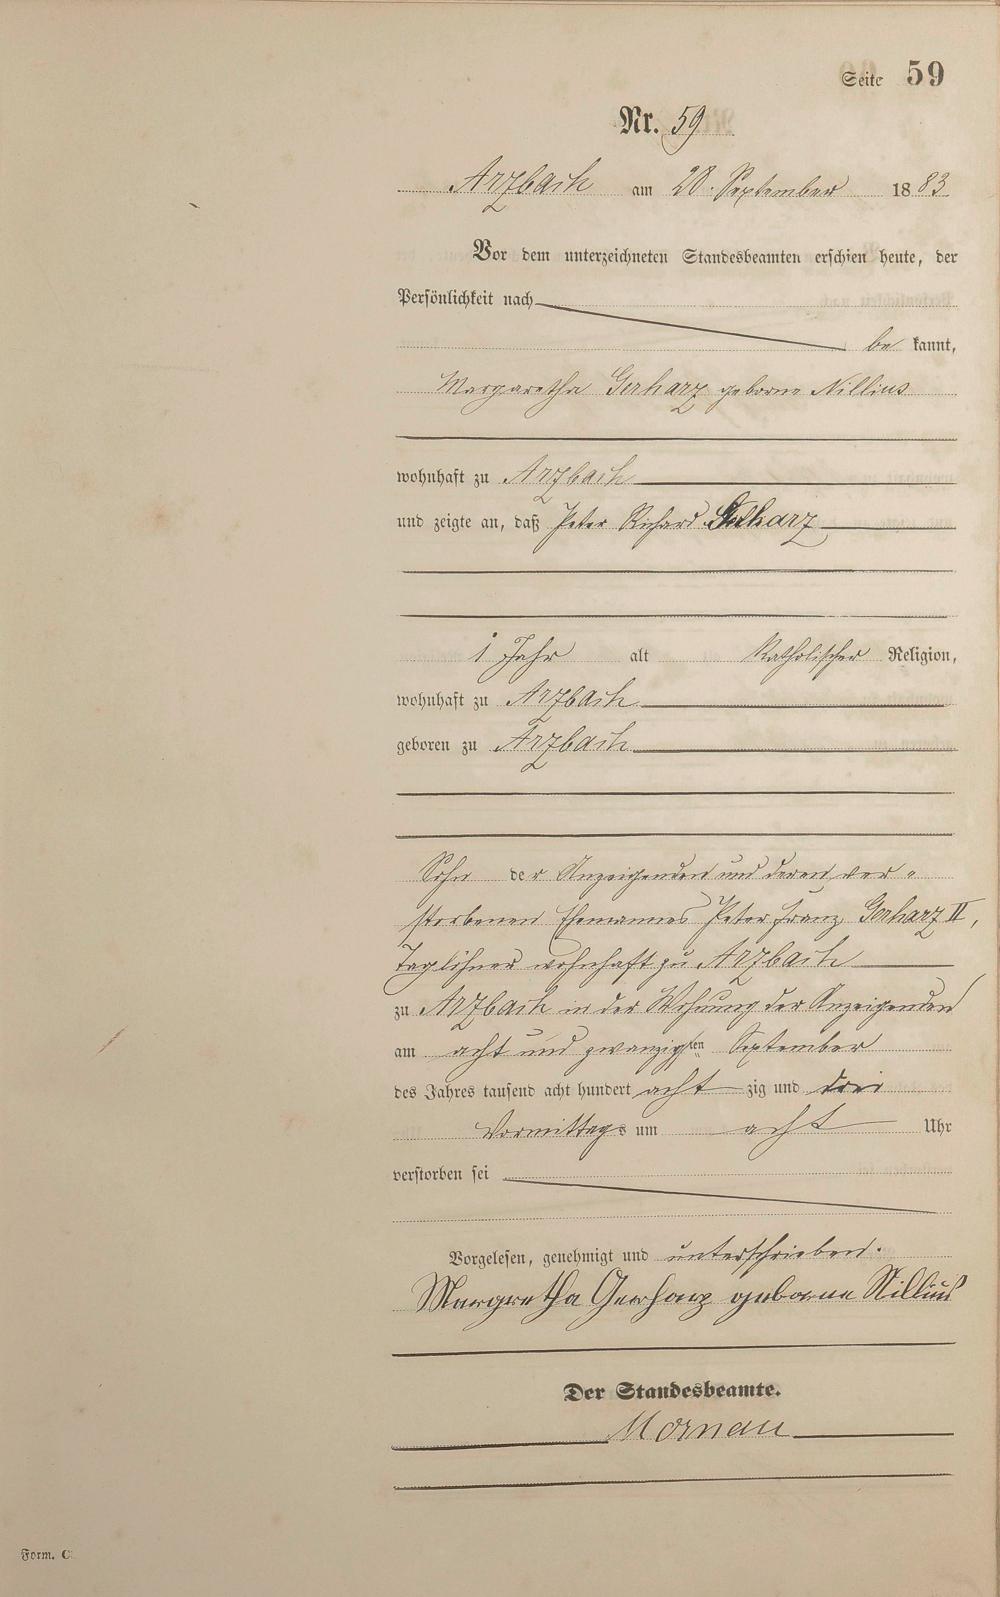 Seite 59
Nr. 59
Arzbach am 28. September 1883
Vor dem unterzeichneten Standesbeamten erschien heute, der
Persönlichkeit nach
be kannt,
Margaretha Gerharz geborne Nillius
wohnhaft zu Arzbach
und zeigte an, daß Peter Richard Gerharz
1 Jahr alt Katholischer Religion,
wohnhaft zu Arzbach
geboren zu Arzbach
Sohn der Anzeigenden und deren ver-
storbenen Ehemannes Peter Franz Gerharz II,
Taglöhner wohnhaft zu Arzbach
zu Arzbach in der Wohnung der Anzeigenden
am acht und zwanzigsten September
des Jahres tausend acht hundert acht zig und drei
Vormittags um acht Uhr
verstorben sei
Vorgelesen, genehmigt und unterschrieben.
Margretha Gerharz geborne Nillius
Der Standesbeamte.
Mornau
Form. C.